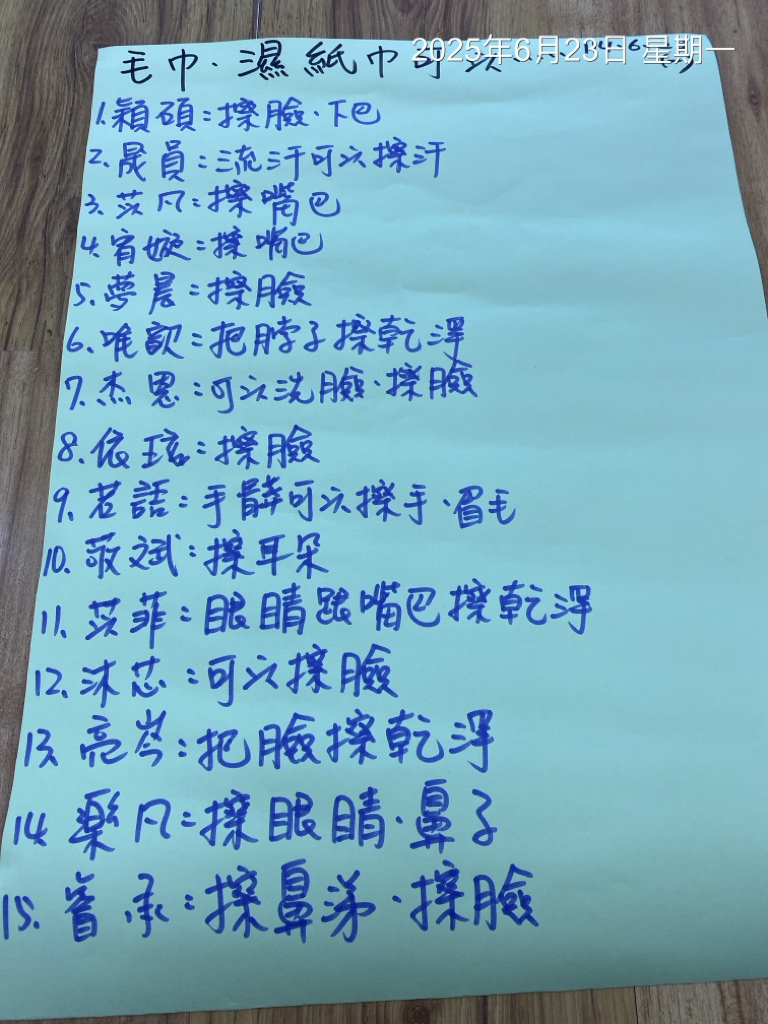 2025年6月23日 星期一
毛巾.濕紙巾可以
1.穎碩:擦臉.下巴
2.晟員:流汗可以擦汗
3.苡凡:擦嘴巴
4.宥嫙:擦嘴巴
5.夢晨:擦臉
6.唯歆:把脖子擦乾淨
7.杰恩:可以洗臉.擦臉
8.依玹:擦臉
9.若語:手髒可以擦手.眉毛
10.敬斌:擦耳朵
11.苡菲:眼睛跟嘴巴擦乾淨
12.沐芯:可以擦臉
13.亮岑:把臉擦乾淨
14.樂凡:擦眼睛.鼻子
15.睿承:擦鼻涕.擦臉